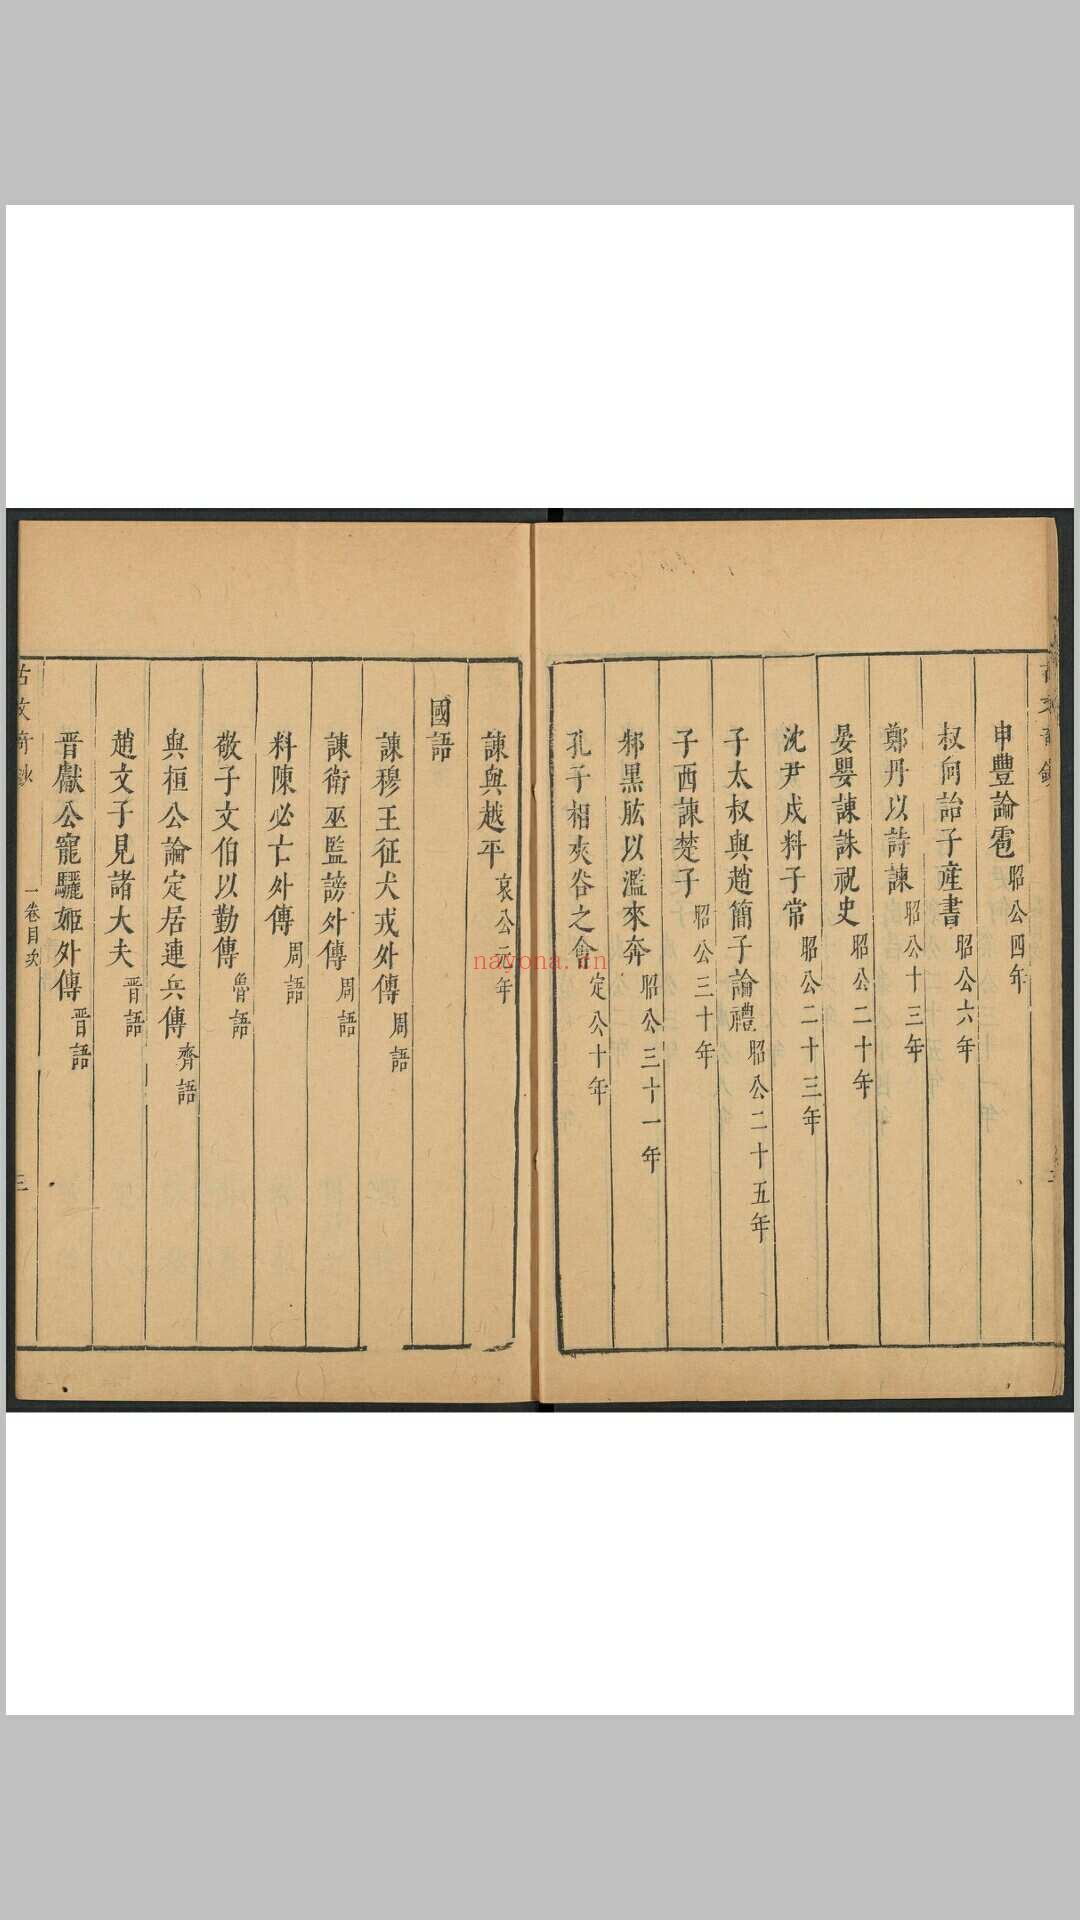 申豐論雹 昭公四年
叔向詒子產書 昭公六年
鄭丹以詩諫 昭公十三年
晏嬰諫誅祝史 昭公二十年
沈尹戍料子常 昭公二十三年
子太叔與趙簡子論禮 昭公二十五年
子西諫楚子 昭公三十年
邾黑肱以濫來奔 昭公三十一年
孔子相夾谷之會 定公十年
諫與越平 哀公元年
國語
諫穆王征犬戎外傳 周語
諫衛巫監謗外傳 周語
料陳必亡外傳 周語
敬子文伯以勤傳 魯語
與桓公論定居連兵傳 齊語
趙文子見諸大夫 晋語
晋獻公寵驪姬外傳 晋語
古文奇 一卷目次 三
nayona.cn